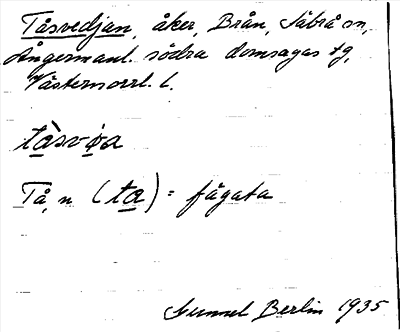 Tåsvedjan, åker, Brån, Säbrå sn,
Ångermanl. södra domsagas tg,
Västernorrl. l.
Tå, n (ta) = fägata
Gunnel Berlin 1935